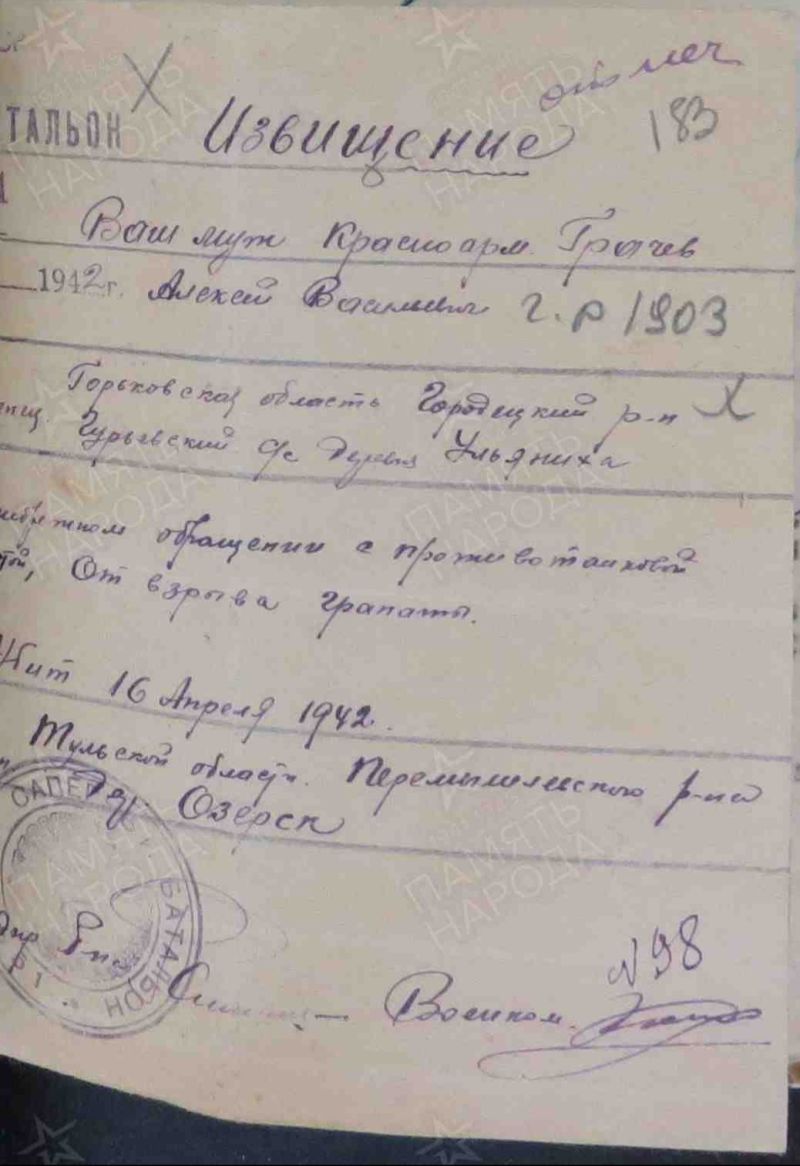 отмеч
183
ТАЛЬОН
Извищение
Ваш муж Красноарм. Грачев
1942 г. Алексей Васильевич г.р 1903
Горьковская область Городецкий р-н
Гурьевский с/с Деревня Ульяниха
обращении с противотанковой
той, От взрыва гранаты.
16 Апреля 1942.
Тульской области. Перемышлевского р-на
Дер. Озерск
САПЕР
БАТАЛЬОН
N 98
Военком.
ПАМЯТЬ НАРОДА